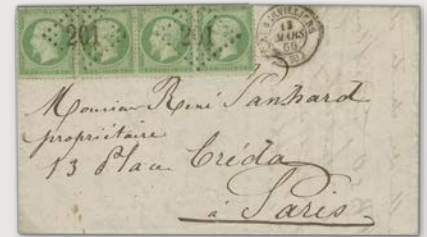 201
201
13
MARS
68
Monsieur René Panhard
propriétaire
13 Place Bréda
à Paris